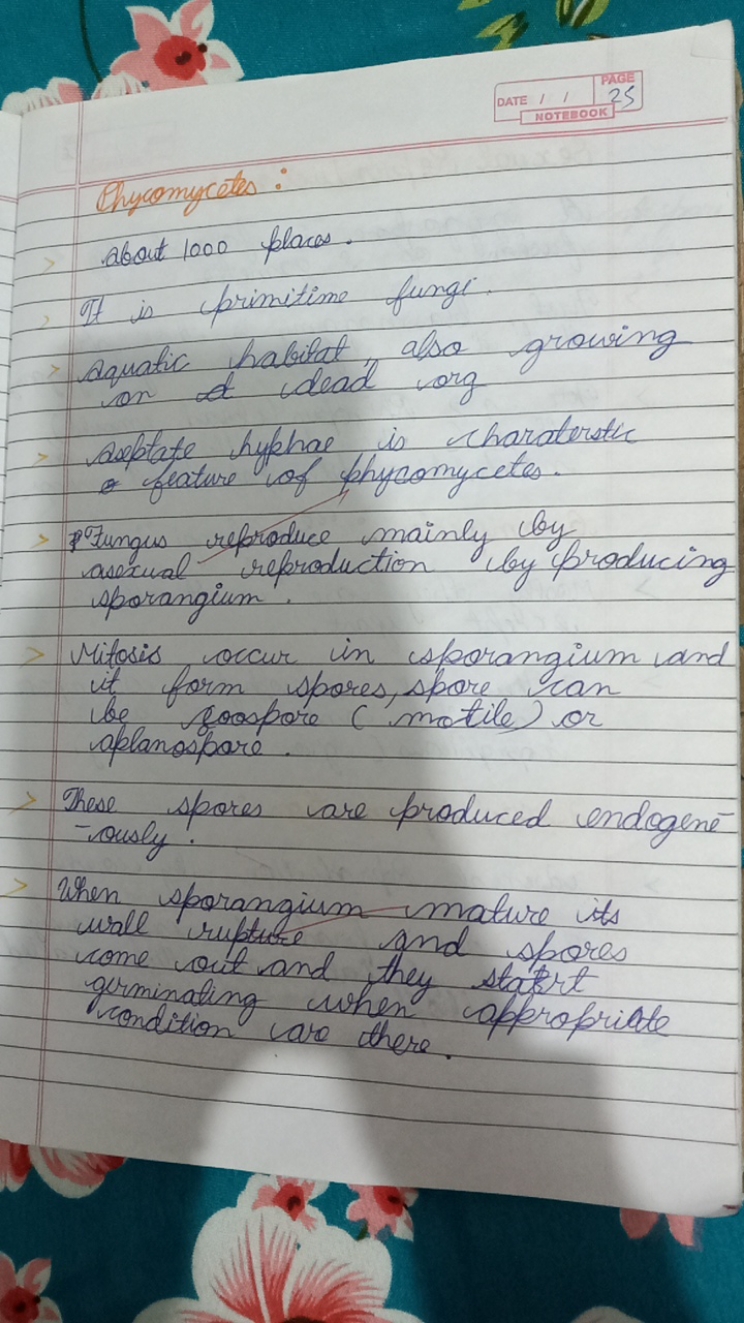 DATE / / PAGE 25
NOTEBOOK
Phycomycetes :
> About 1000 places.
> It is primitime fungi.
> Aquatic habitat, also growing
on dead org
> Aseptate hyphae is charaterstic
feature of phycomycetes.
> Fungus reproduce mainly by
asexual reproduction by producing
sporangium.
> Mitosis occur in sporangium and
it form spores, spore can
be zoospore (motile) or
aplanospore.
> These spores are produced endogene
-ously.
> When sporangium mature its
wall rupture and spores
come out and they start
germinating when appropriate
condition are there.